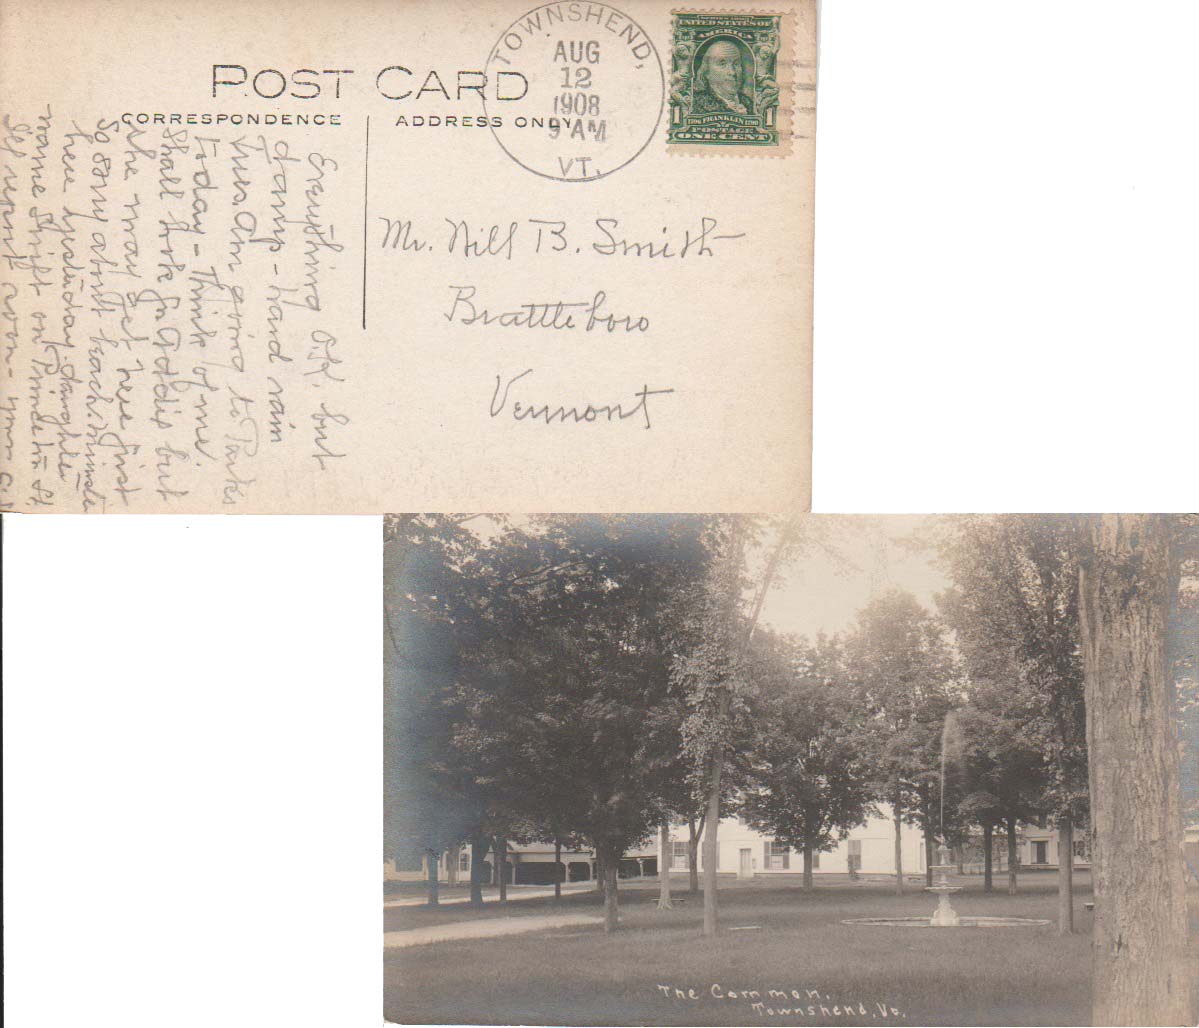 POST CARD
CORRESPONDENCE
ADDRESS ONLY
TOWNSHEND,
AUG
12
1908
9 AM
VT.
SERIES 1902
UNITED STATES OF
AMERICA
1 1706 FRANKLIN 1790 1
POSTAGE
ONE CENT
Mr. Will B. Smith
Brattleboro
Vermont
Everything O.K. but
damp - hard rain
Tues. Am going to Parks
today - Think of me.
Shall look for Addis but
she may get here first
So sorry about beach. Minister
here yesterday daughter
name Swift on Princeton St.
report soon -
The Common.
Townshend, Vt.